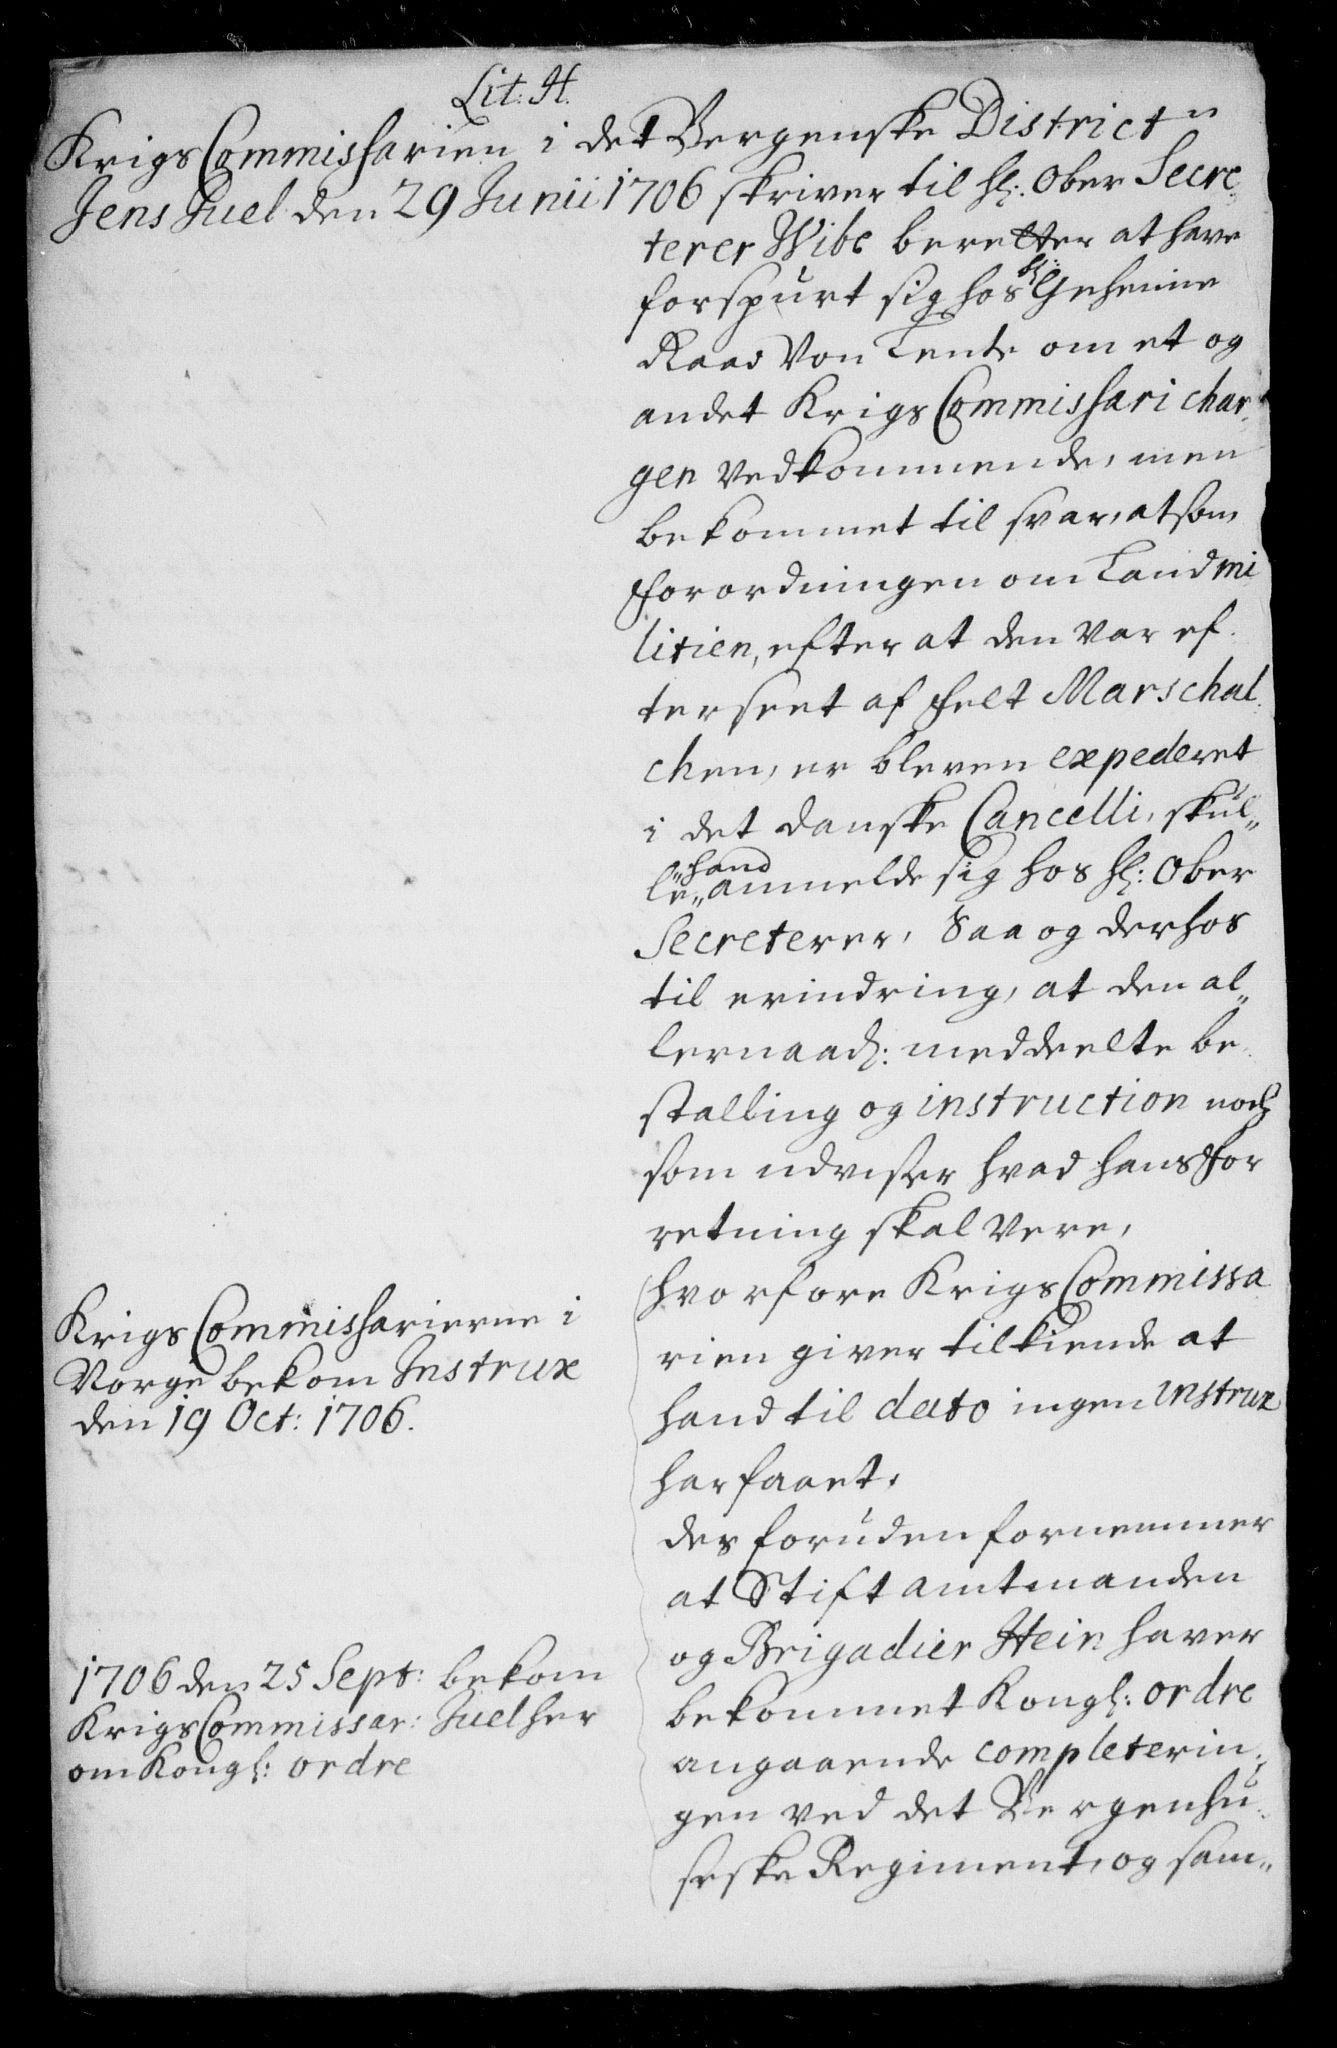 Lit: H.
Krigs Commissarien i det Bergenske District
Jens Juel den 29 Junii 1706 skriver til Hl: Ober Secre
terer Wibe beretter at have
forspurt sig hos hl: Geheime
Raad Von Lente om et og
andet Krigs Commissari char
gen vedkommende, men
bekommet til svar, at som
forordningen om Land mi
litien, efter at den var ef
terseet af Felt Marschal
chen, er bleven expederet
i det danske Cancelli, skul„
le„ hand anmelde sig hos hl: Ober
Secreterer, Saa og derhos
til erindring, at den al„
lernaad: meddeelte be
stalling og instruction noch
som udviser hvad hans for
retning skal vere,
hvorfore Krigs Commissa
rien giver tilkiende at
hand til dato ingen instrux
har faaet.
des foruden fornemmer
at Stiftamtmanden
og Brigadier Hein haver
bekommet Kongl: ordre
angaaende completerin
gen ved det Bergenhu
seske Regiment, og sam„
Krigs Commissarierne i
Norge bekom Instrux
den 19 Oct: 1706.
1706 den 25 Sept: bekom
Krigs Commissar: Juel her
om Kongl: ordre